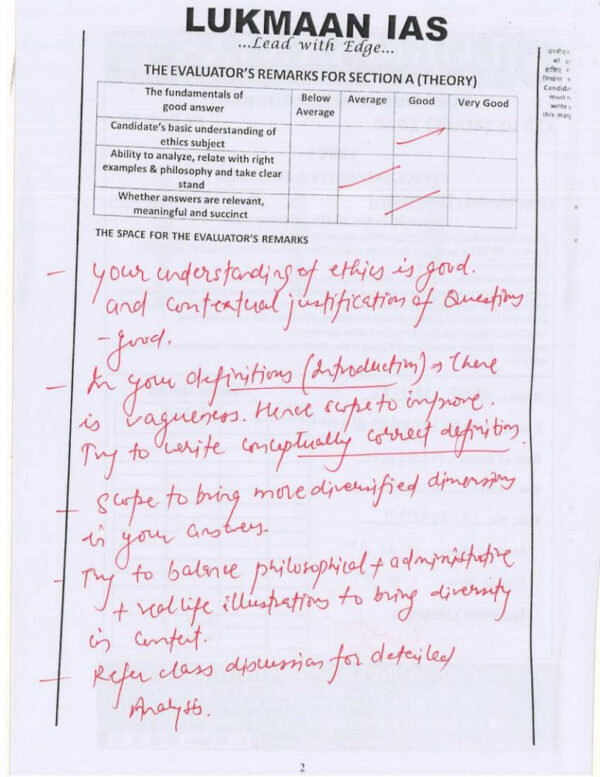 LUKMAAN IAS
...Lead with Edge...
THE EVALUATOR'S REMARKS FOR SECTION A (THEORY)
The fundamentals of good answer Below Average Average Good Very Good
Candidate's basic understanding of ethics subject
Ability to analyze, relate with right examples & philosophy and take clear stand
Whether answers are relevant, meaningful and succinct
THE SPACE FOR THE EVALUATOR'S REMARKS
- Your understanding of ethics is good.
and contextual justification of Questions
- good.
- In your definitions (Introduction) → there
is vagueness. Hence scope to improve.
Try to write conceptually correct definition.
- Scope to bring more diversified dimensions
in your answers.
- Try to balance philosophical + administrative
+ real life illustrations to bring diversity
in content.
- Refer class discussion for detailed
Analysis.
2